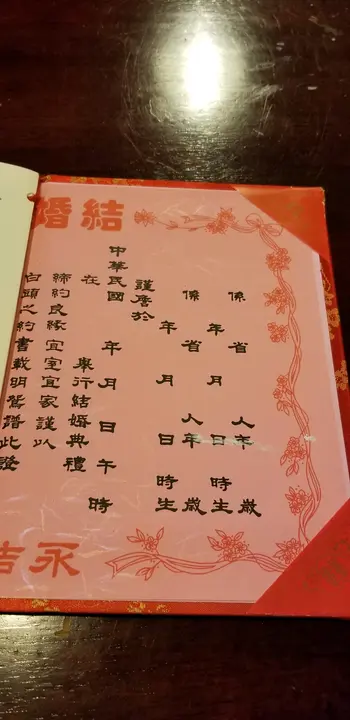 結婚
係 省 人年 歲
年 月 日 時生
係 省 人年 歲
年 月 日 時生
謹詹於
中華民國 年 月 日 午 時
在 舉行結婚典禮
締約良緣宜室宜家謹以
白頭之約書載明鴛譜此證
永